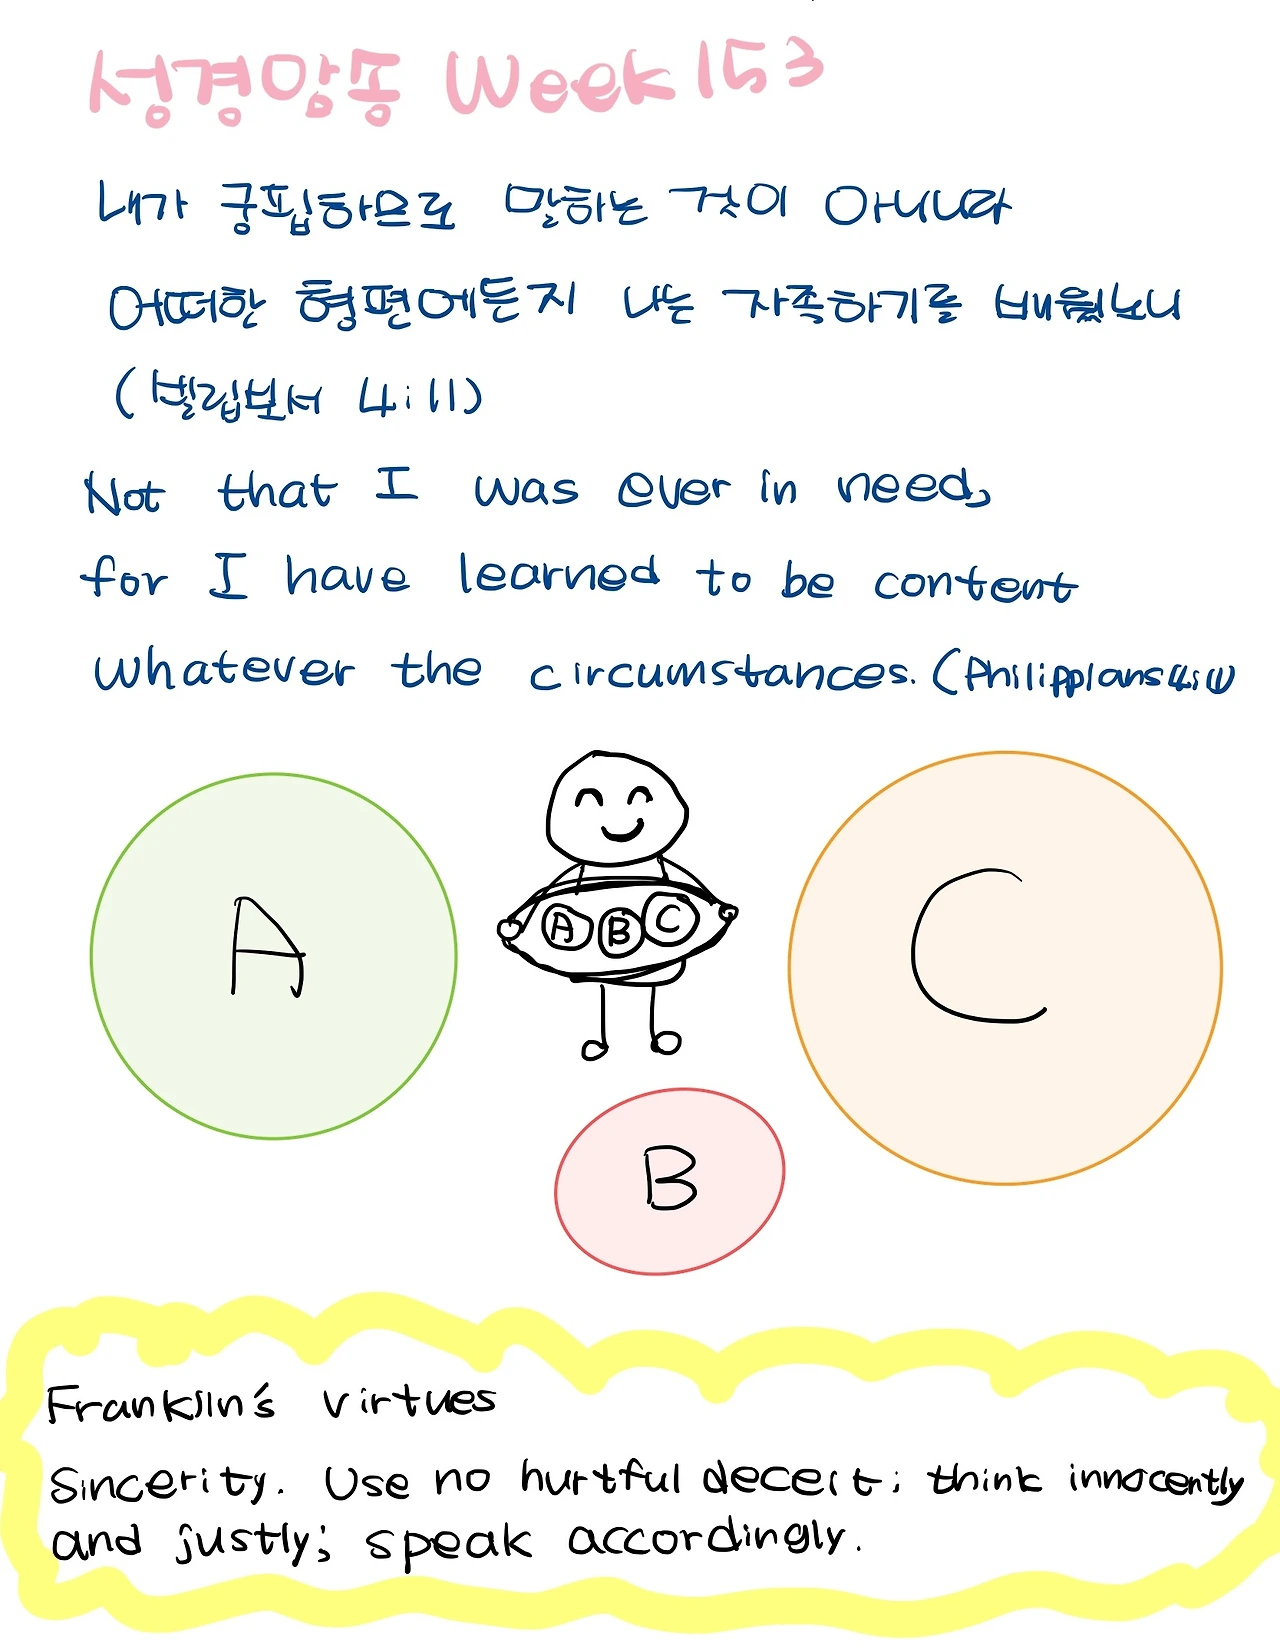 성경암송 Week 153
내가 궁핍하므로 말하는 것이 아니니라
어떠한 형편에든지 나는 자족하기를 배웠노니
(빌립보서 4:11)
Not that I was ever in need,
for I have learned to be content
whatever the circumstances. (Philippians 4:11)
A
A B C
C
B
Franklin's virtues
Sincerity. Use no hurtful deceit; think innocently
and justly; speak accordingly.